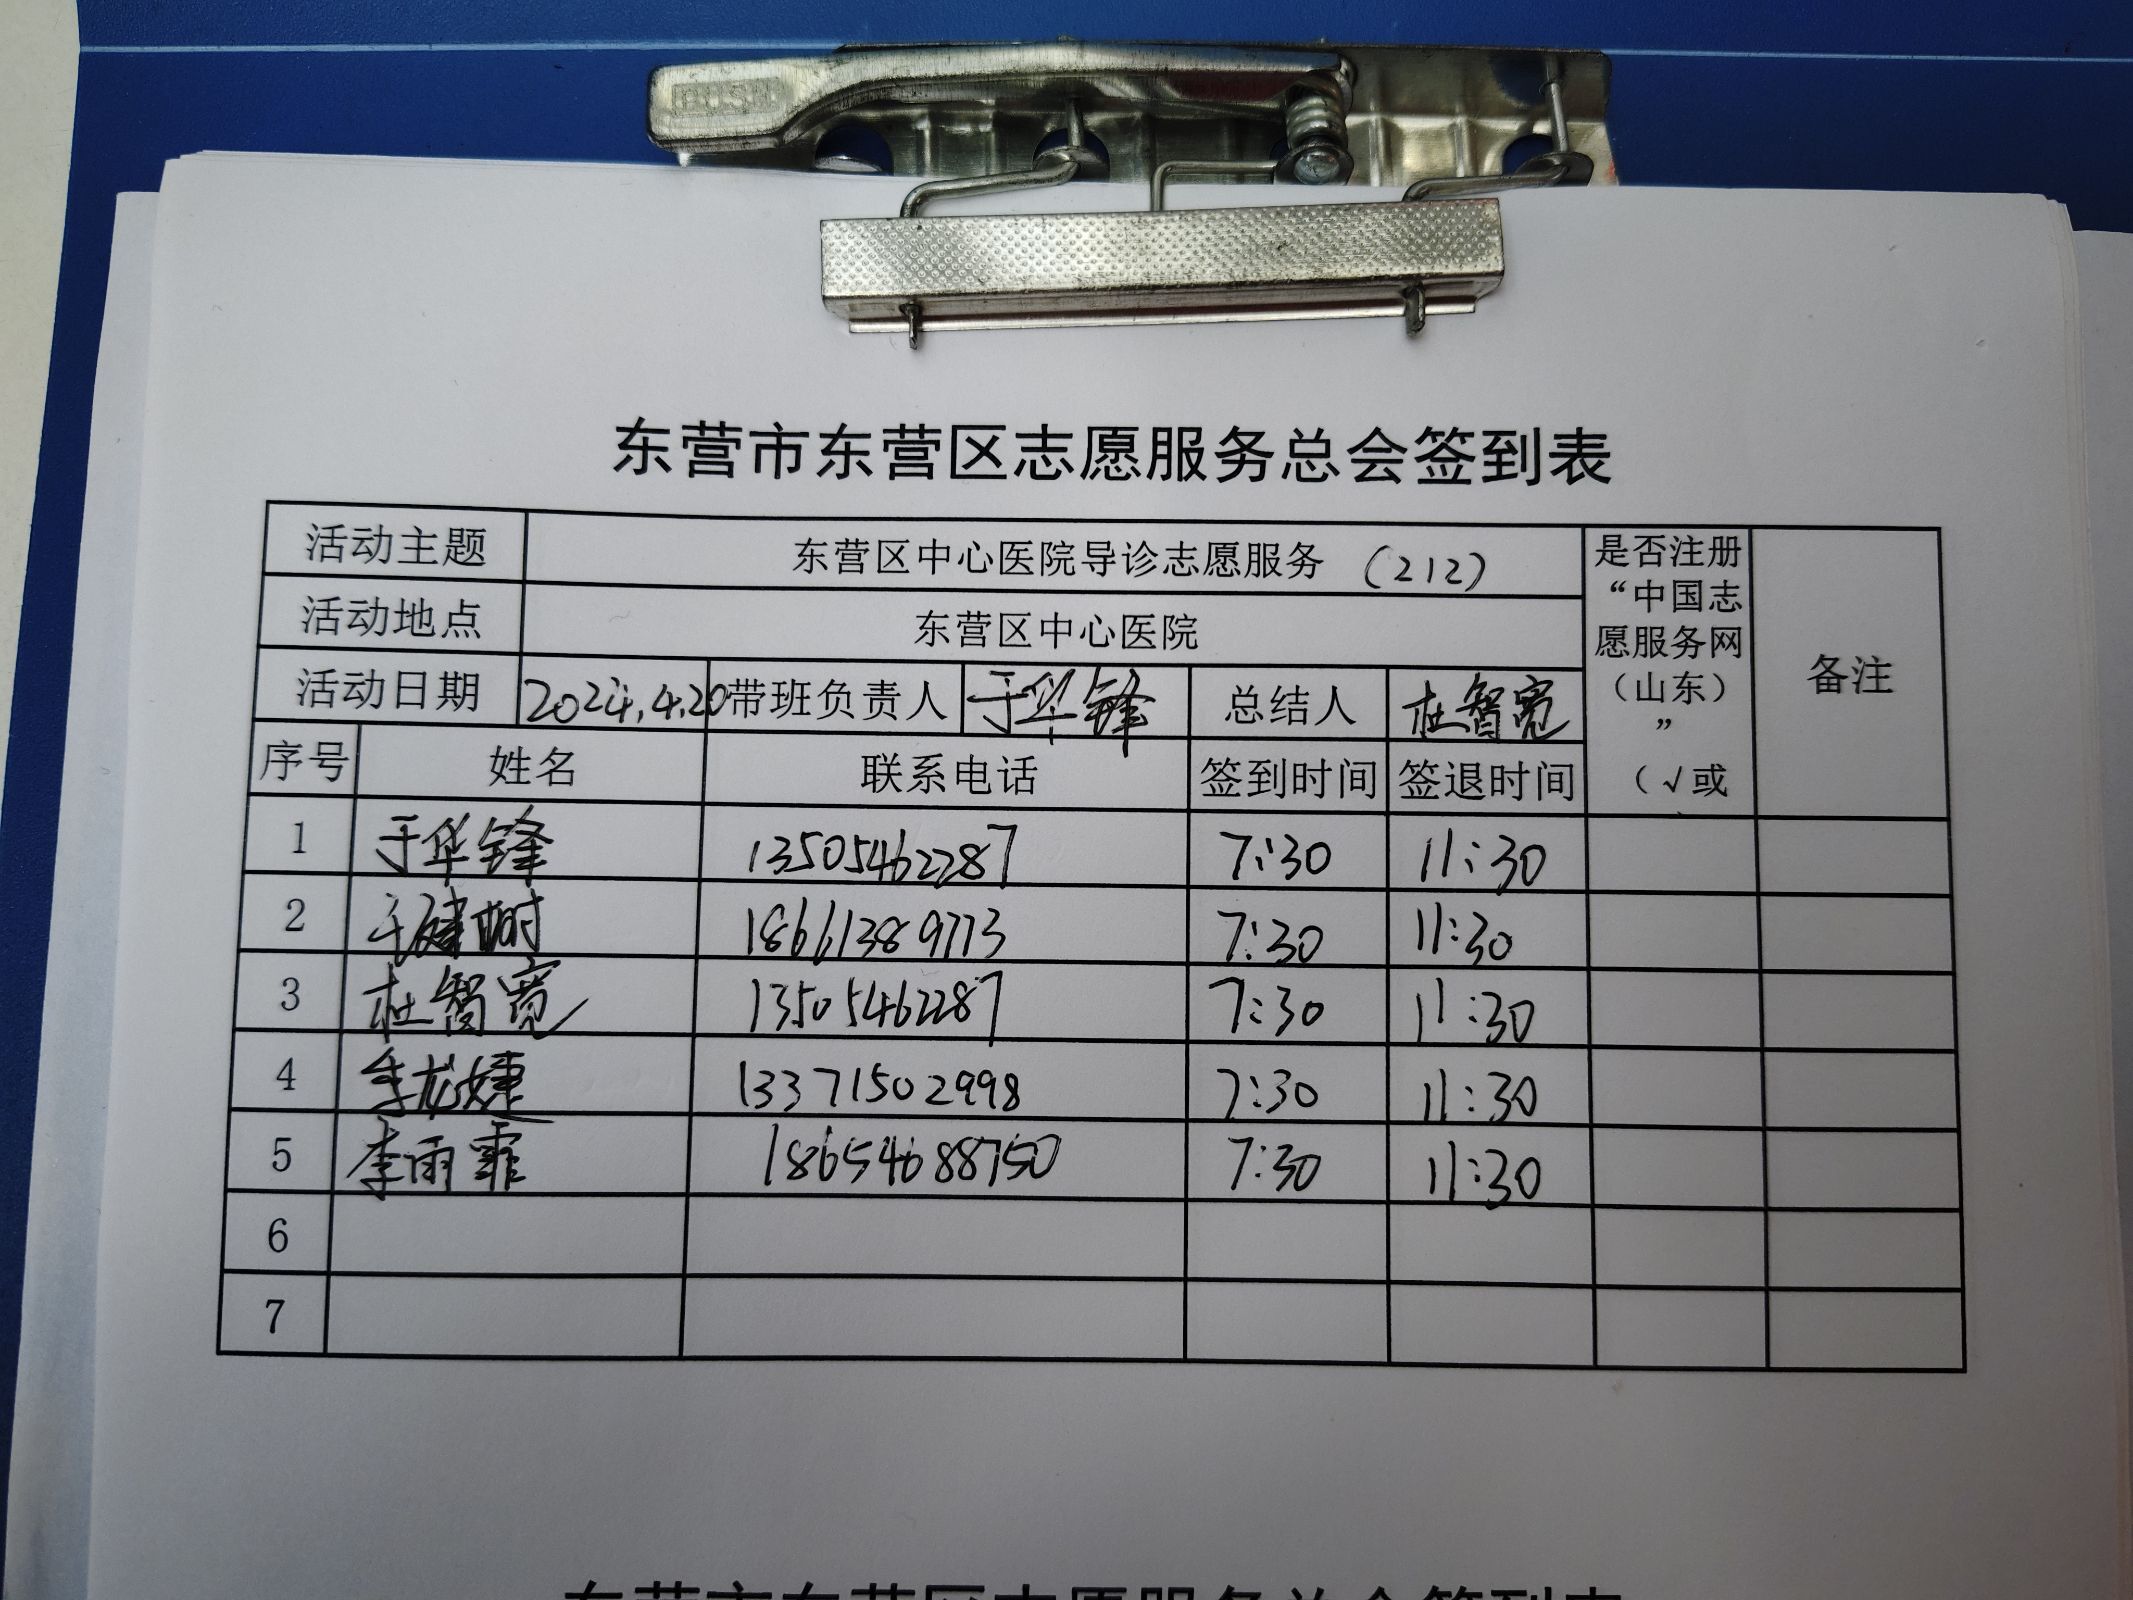 PUSH
东营市东营区志愿服务总会签到表
活动主题 东营区中心医院导诊志愿服务 (212) 是否注册“中国志愿服务网（山东）”（√或 备注
活动地点 东营区中心医院
活动日期 2024.4.20 带班负责人 于华锋 总结人 杜智宽
序号 姓名 联系电话 签到时间 签退时间
1 于华锋 13505462287 7:30 11:30
2 于建树 18661389773 7:30 11:30
3 杜智宽 13505462287 7:30 11:30
4 李龙婕 13371502998 7:30 11:30
5 李雨霏 18654688750 7:30 11:30
6
7
东营市东营区志愿服务总会签到表